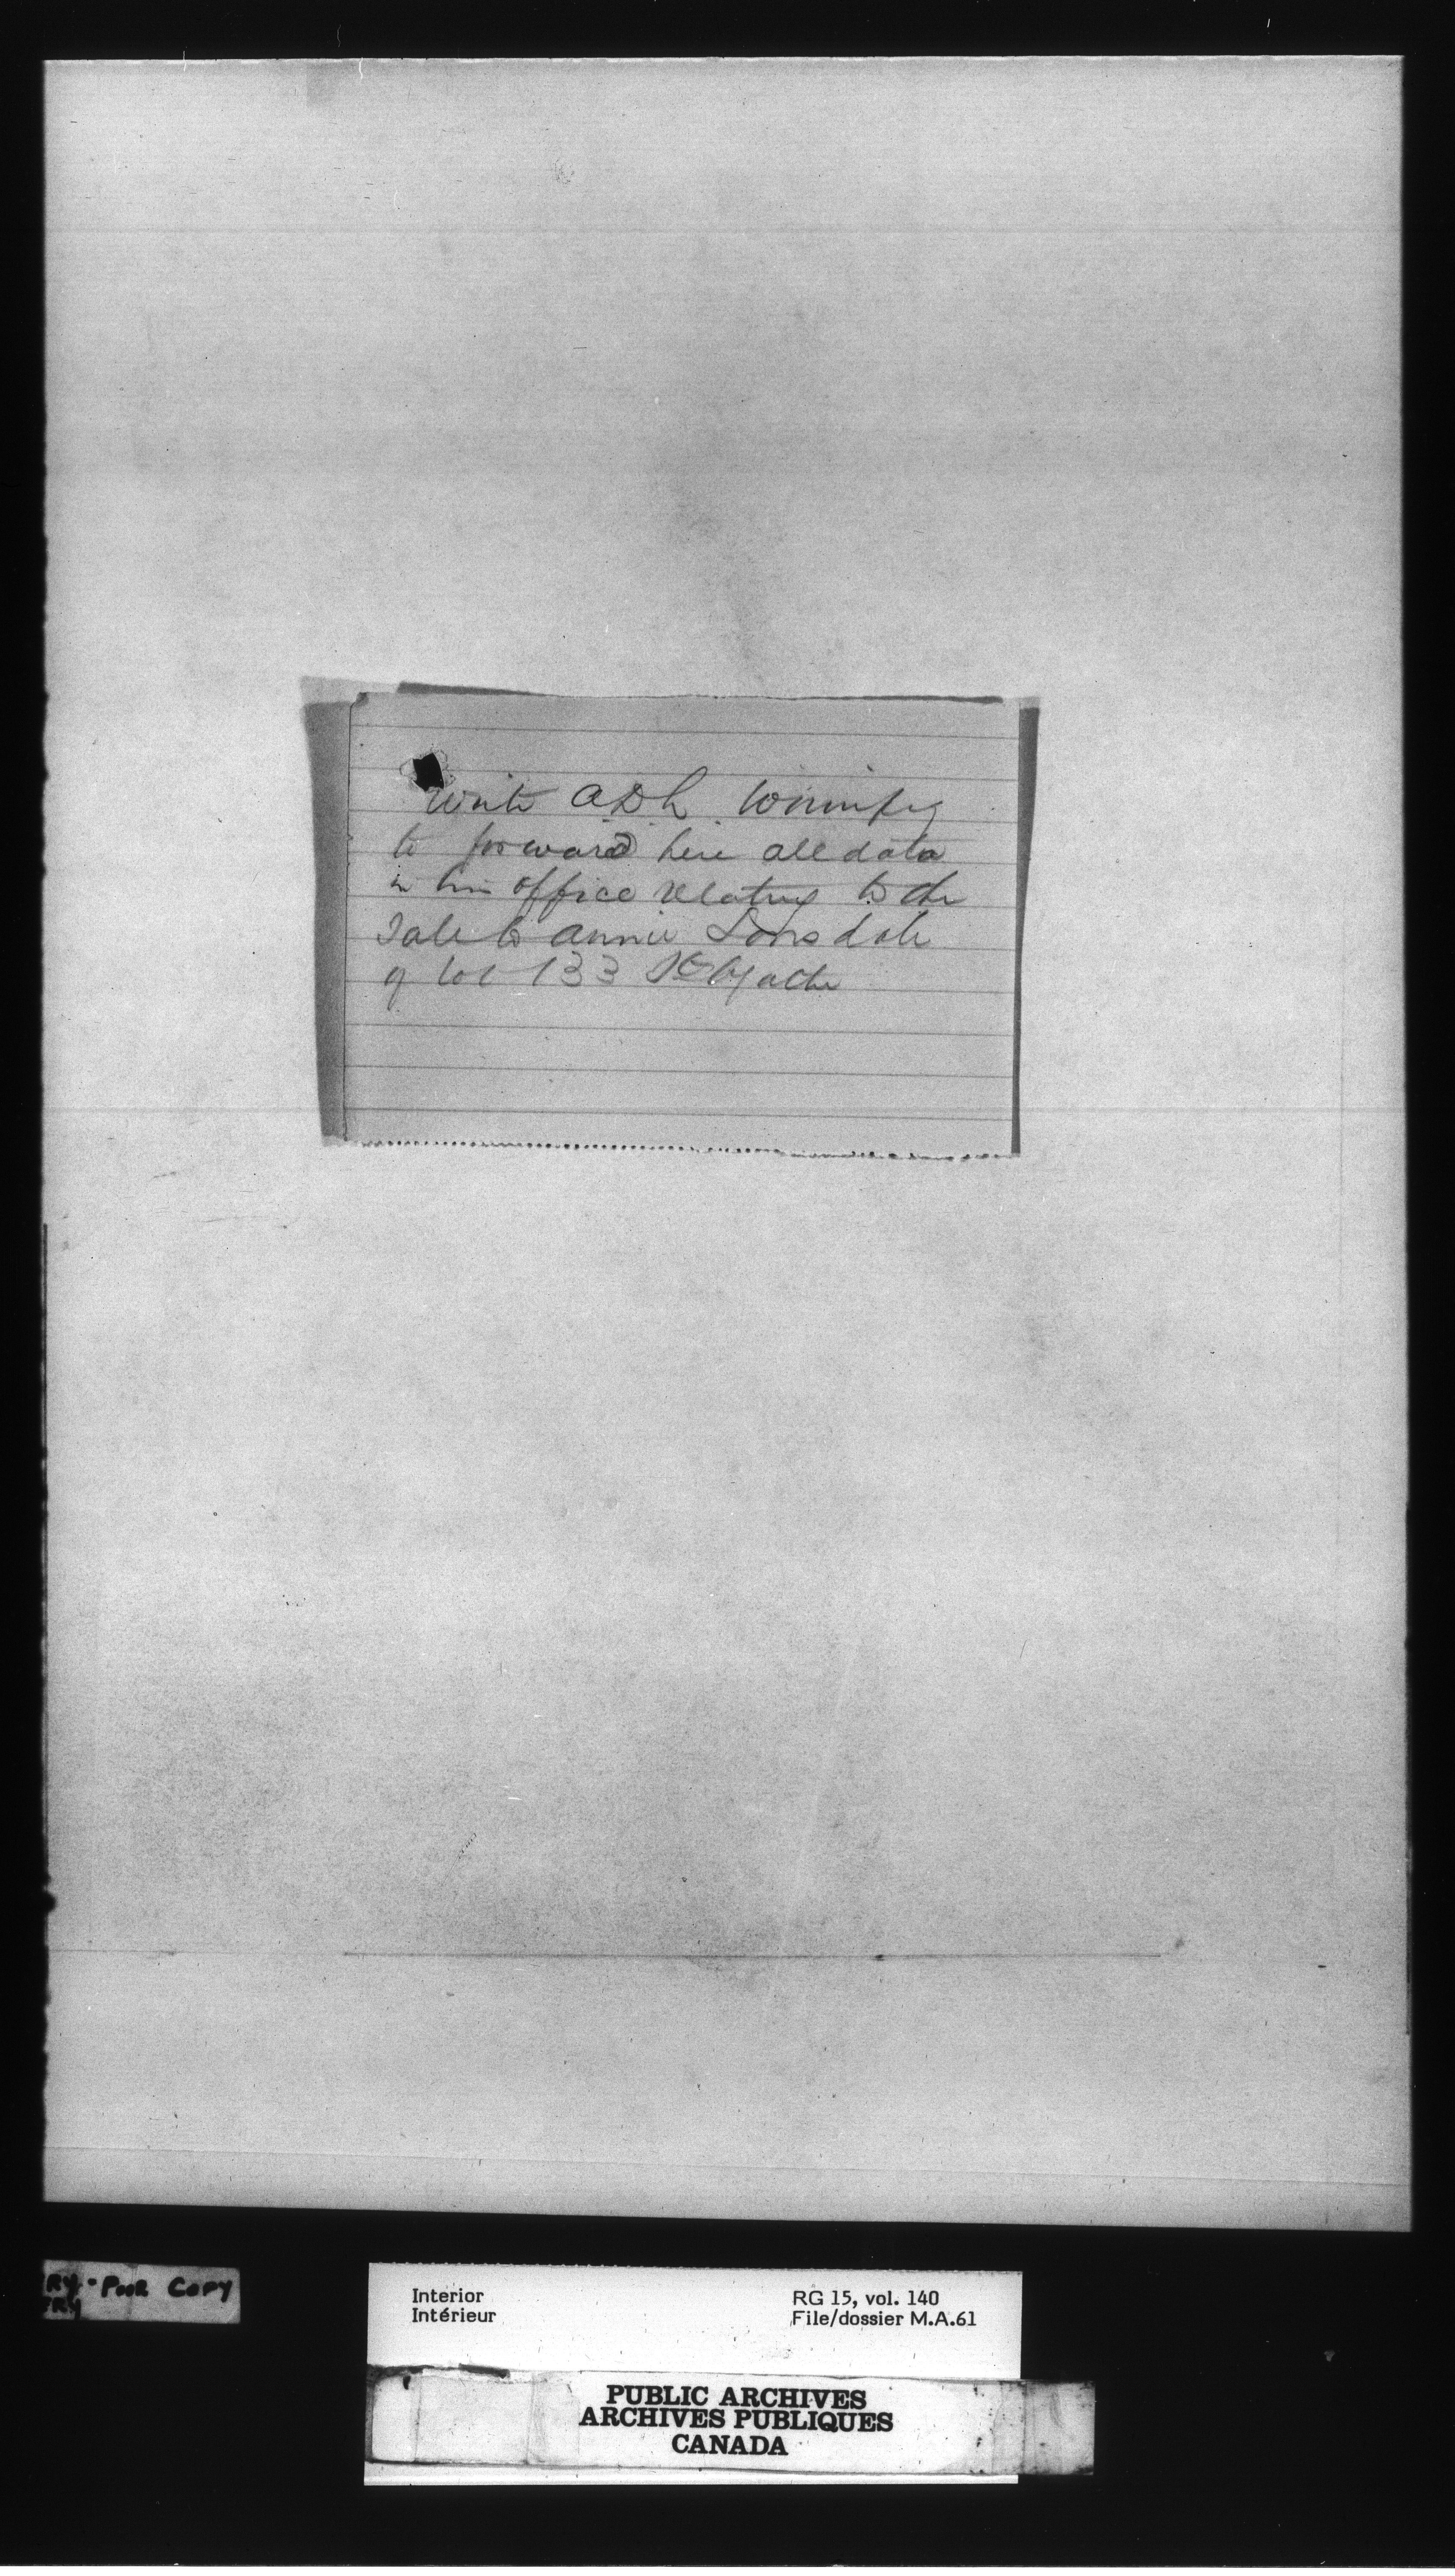 Write A.D.L. Winnipeg
to forward here all data
in his office relating to the
Sale to Annie Lonsdale
of lot 133 Ste Agathe
RY - POOR COPY
RY
Interior
Intérieur
RG 15, vol. 140
File/dossier M.A.61
PUBLIC ARCHIVES
ARCHIVES PUBLIQUES
CANADA